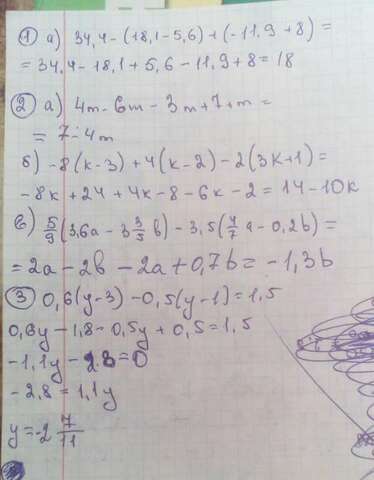 ① а) 34,4-(18,1-5,6)+(-11,9+8)=
= 34,4-18,1+5,6-11,9+8=18
② а) 4m-6m-3m+7+m=
= 7-4m
б) -8(k-3)+4(k-2)-2(3k+1)=
-8k+24+4k-8-6k-2=14-10k
в) 5/9(3,6a-3 3/5 b)-3,5(4/7 a-0,2b)=
= 2a-2b-2a+0,7b=-1,3b
③ 0,6(y-3)-0,5(y-1)=1,5
0,6y-1,8-0,5y+0,5=1,5
-1,1y-2,8=0
-2,8=1,1y
y=-2 7/11